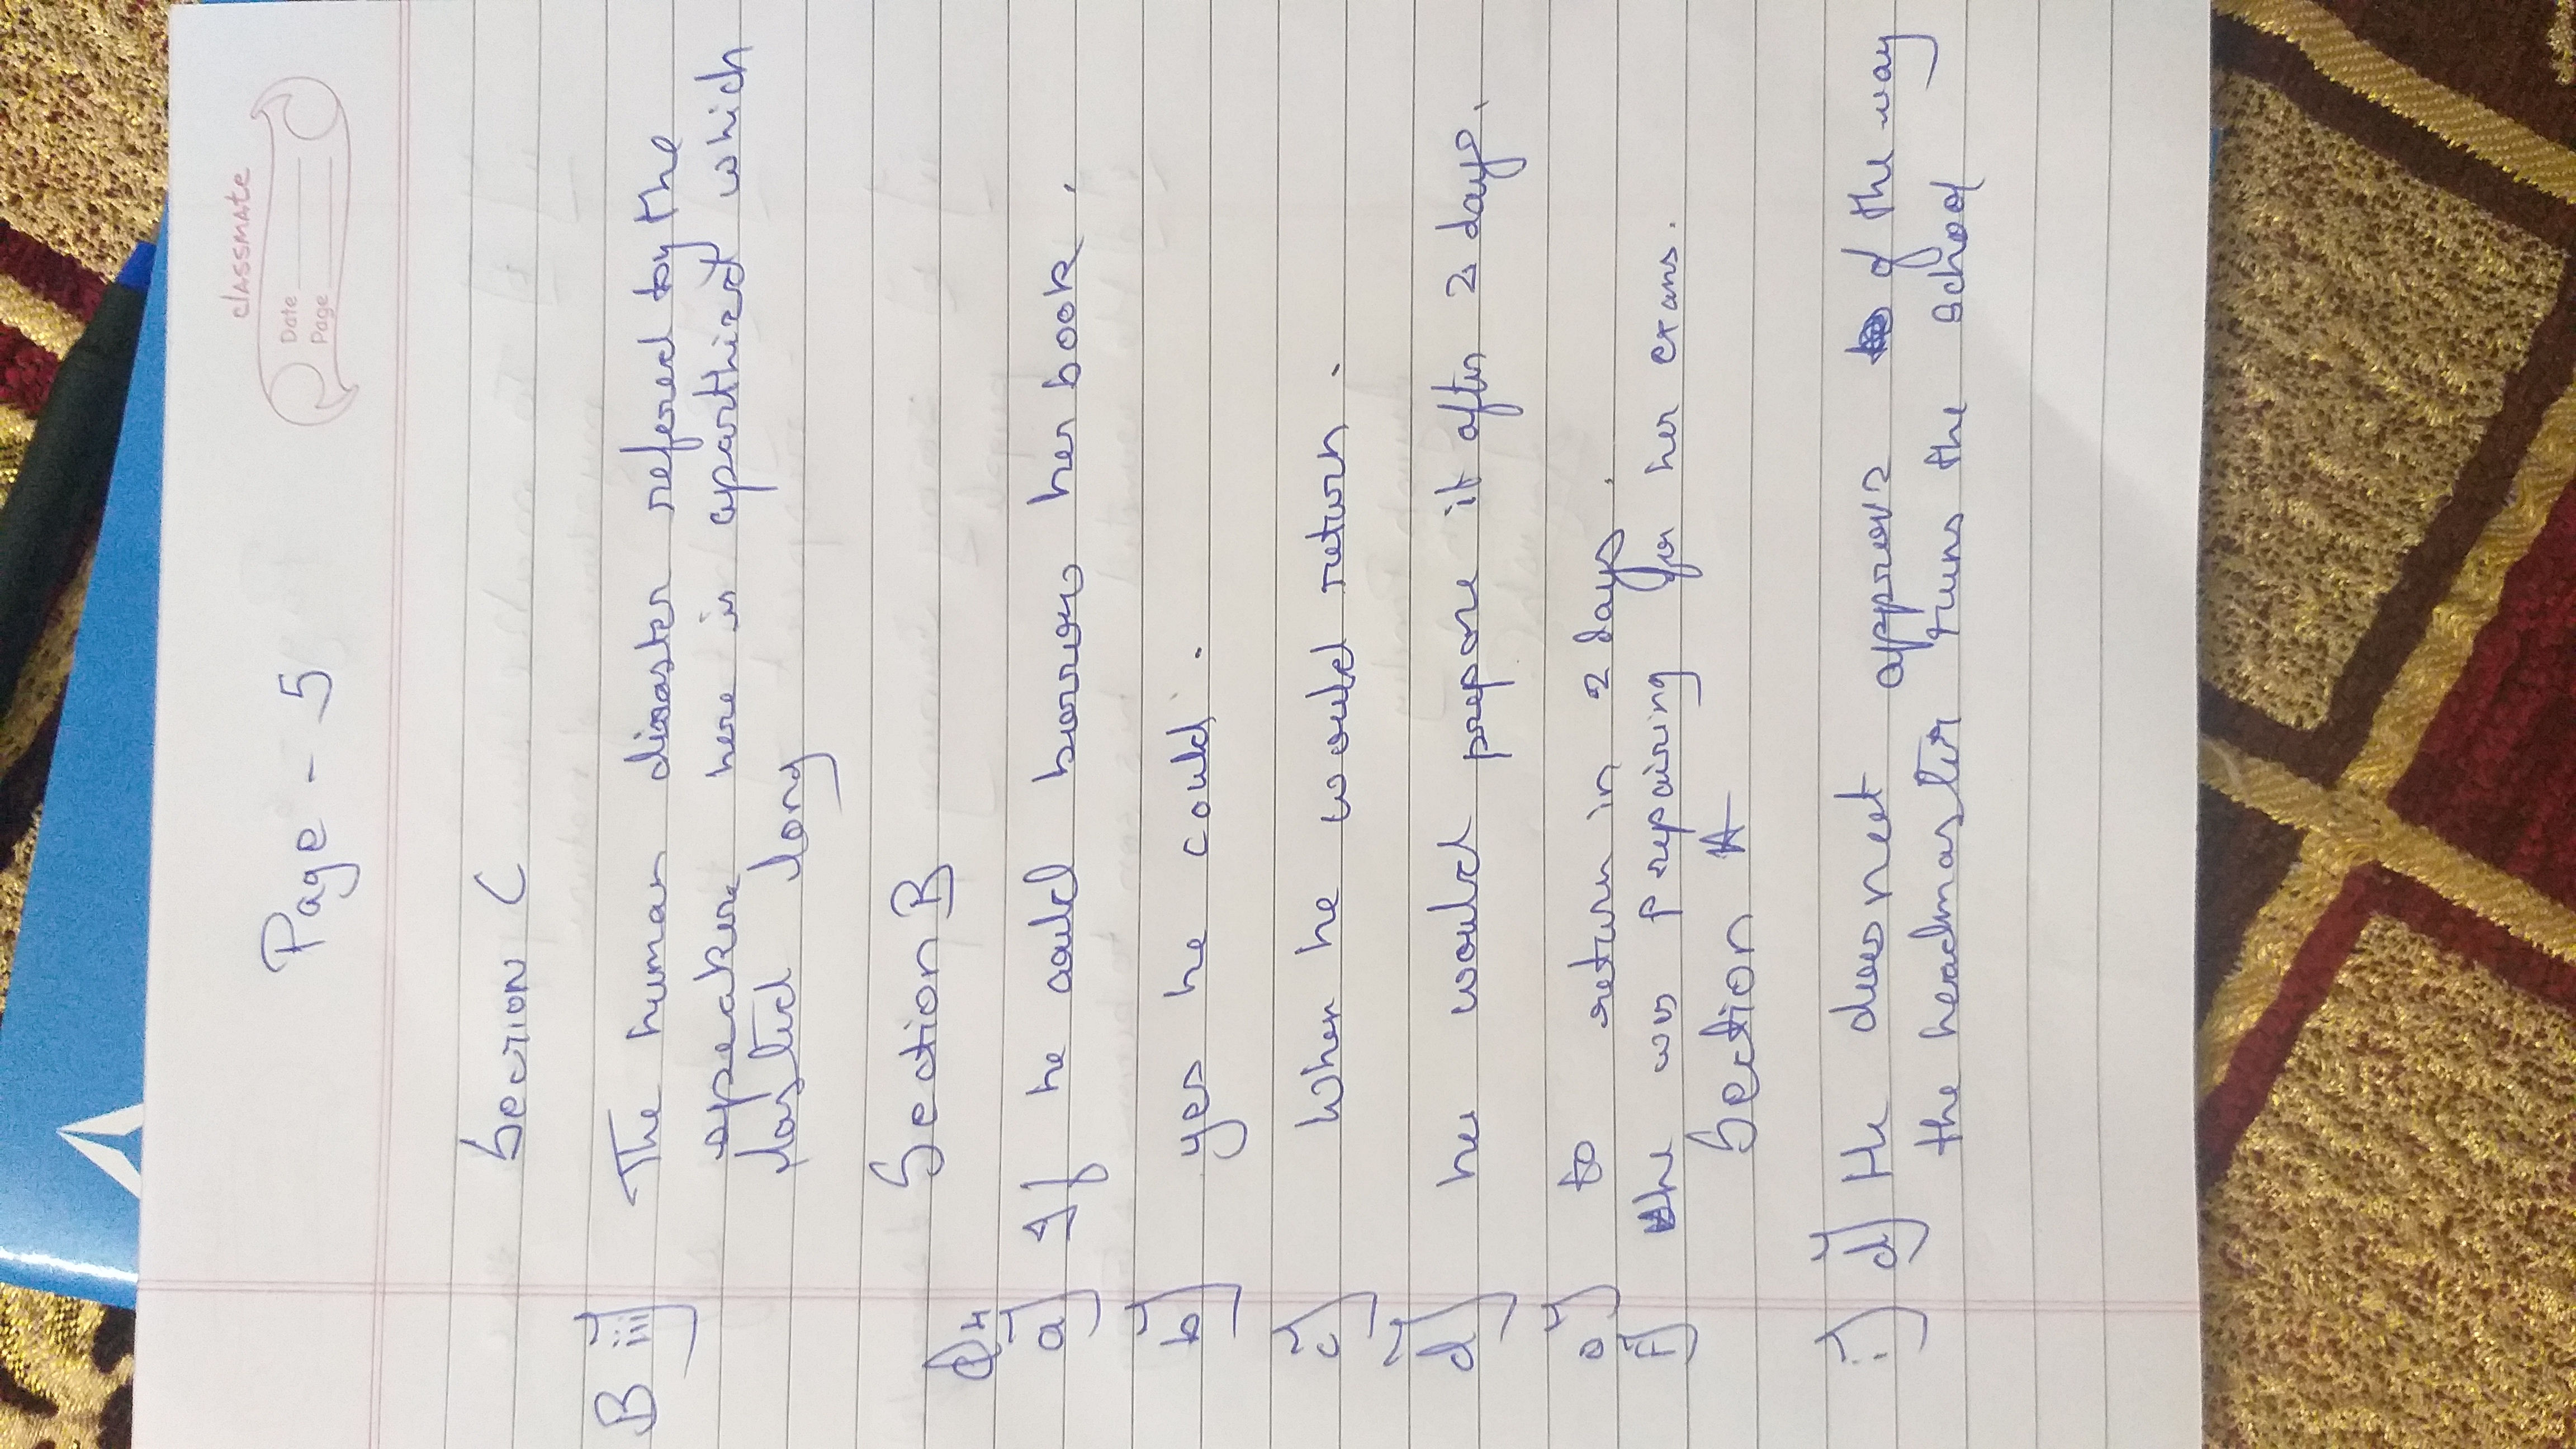 classmate
Date
Page
Page - 5
Section C
B iii) The human disaster refered by the
speaker here is aparthied which
lasted long
Section B
Q4
a) If he could borrow her book.
b) yes he could.
c) When he would return.
d) he would prepare it after 2 days.
e) to return in 2 days.
f) she was prepairing for her exams.
Section A
i) d) He does not approve of the way
the headmaster runs the school